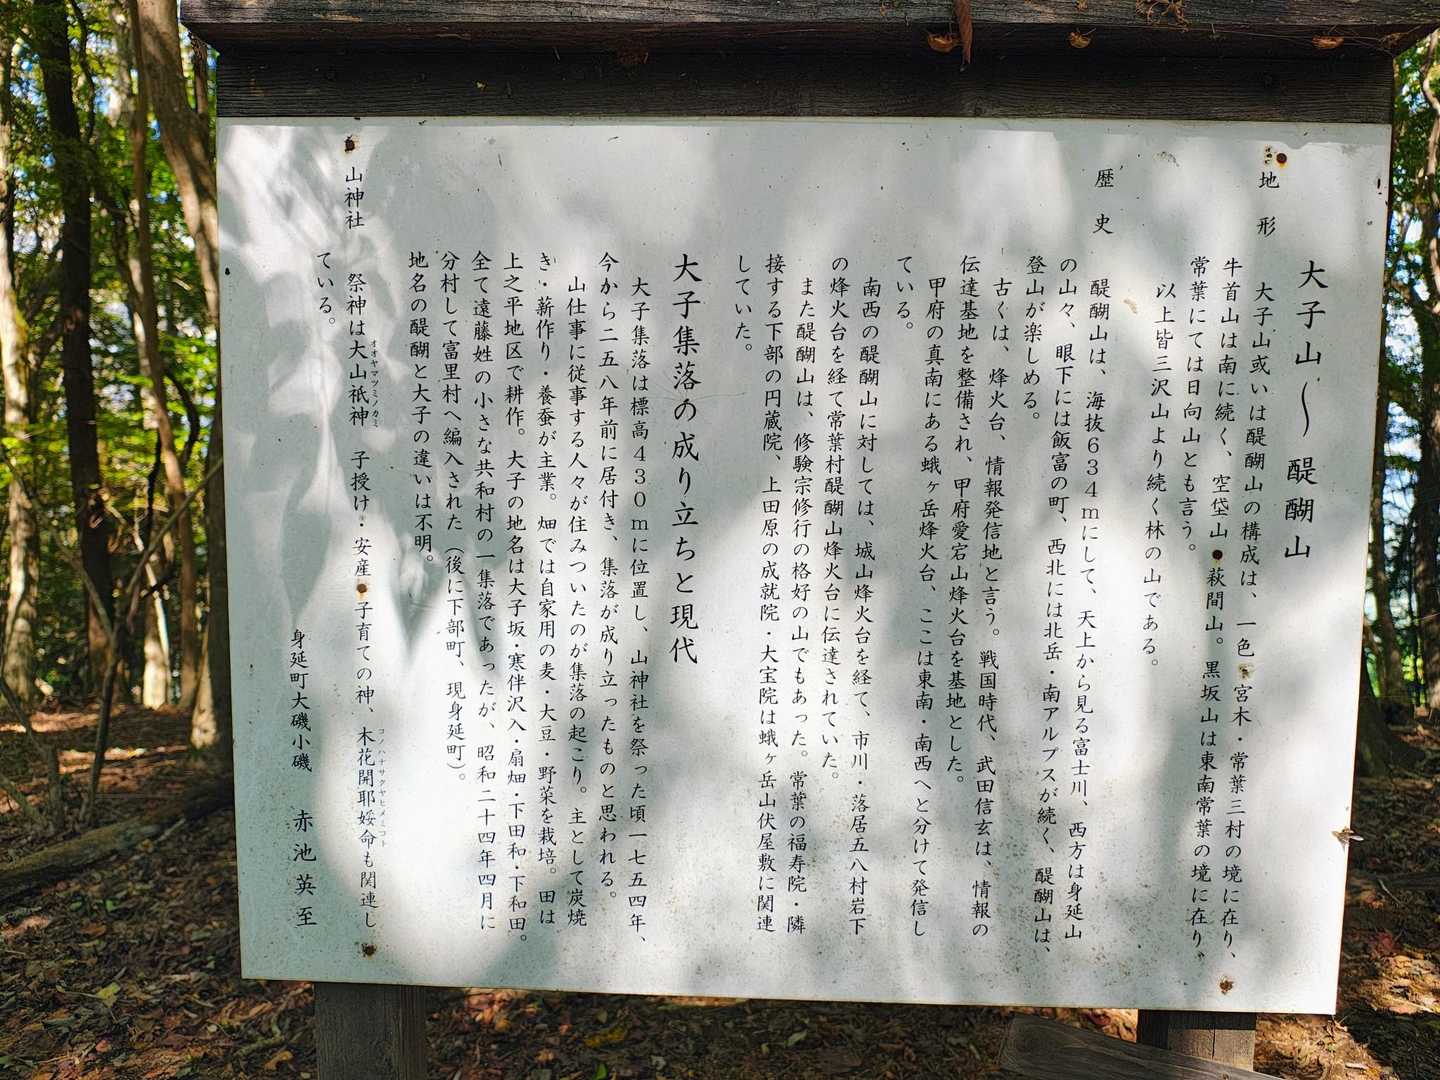 大子山〜醍醐山
地形
大子山或いは醍醐山の構成は、一色・宮木・常葉三村の境に在り、
牛首山は南に続く、空岱山・萩間山。黒坂山は東南常葉の境に在り、
常葉にては日向山とも言う。
以上皆三沢山より続く林の山である。
歴史
醍醐山は、海抜634mにして、天上から見る富士川、西方は身延山
の山々、眼下には飯富の町、西北には北岳・南アルプスが続く、醍醐山は、
登山が楽しめる。
古くは、烽火台、情報発信地と言う。戦国時代、武田信玄は、情報の
伝達基地を整備され、甲府愛宕山烽火台を基地とした。
甲府の真南にある蛾ヶ岳烽火台、ここは東南・南西へと分けて発信し
ている。
南西の醍醐山に対しては、城山烽火台を経て、市川・落居五八村岩下
の烽火台を経て常葉村醍醐山烽火台に伝達されていた。
また醍醐山は、修験宗修行の格好の山でもあった。常葉の福寿院・隣
接する下部の円蔵院、上田原の成就院・大宝院は蛾ヶ岳山伏屋敷に関連
していた。
大子集落の成り立ちと現代
大子集落は標高430mに位置し、山神社を祭った頃一七五四年、
今から二五八年前に居付き、集落が成り立ったものと思われる。
山仕事に従事する人々が住みついたのが集落の起こり。主として炭焼
き・薪作り・養蚕が主業。畑では自家用の麦・大豆・野菜を栽培。田は
上之平地区で耕作。大子の地名は大子坂・寒伴沢入・扇畑・下田和・下和田。
全て遠藤姓の小さな共和村の一集落であったが、昭和二十四年四月に
分村して富里村へ編入された（後に下部町、現身延町）。
地名の醍醐と大子の違いは不明。
山神社
祭神は大山祇神 子授け・安産・子育ての神、木花開耶姫命も関連し
オオヤマツミノカミ
コノハナサクヤヒメミコト
ている。
身延町大磯小磯 赤池英至